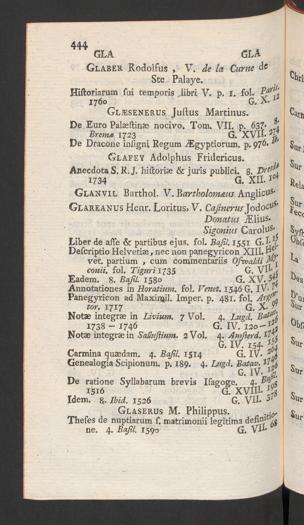 444
GLA GLA
GLABER Rodolfus, V. de la Curne de
Ste Palaye.
Historiarum sui temporis libri V. p. 1. fol. Paris.
1760 G. X. 12
GLÆSENERUS Justus Martinus.
De Euro Palæstinæ nocivo. Tom. VII. p. 637. 8.
Bremæ 1723 G. XVII. 274
De Dracone insigni Regum Ægyptiorum. p. 976. Ib.
GLAFEY Adolphus Fridericus.
Anecdota S. R. J. historiæ & juris publici. 8. Dresdæ
1734 G. XII. 104
GLANVIL Barthol. V. Bartholomæus Anglicus.
GLAREANUS Henr. Loritus. V. Casinerus Jodocus.
Donatus Ælius.
Sigonius Carolus.
Liber de asse & partibus ejus. fol. Basil. 1551 G. I. 15
Descriptio Helvetiæ, nec non panegyricon XIII. Hel-
vet. partium, cum commentariis Oswaldi My-
conii. fol. Tiguri 1735 G. VII.
Eadem. 8. Basil. 1580 G. XV.
Annotationes in Horatium. fol. Venet. 1546 G. IV. 74
Panegyricon ad Maximil. Imper. p. 481. fol. Argen-
tor. 1717 G. X. 99
Notæ integræ in Livium. 7 Vol. 4. Lugd. Batav.
1738 — 1746 G. IV. 120—126
Notæ integræ in Sallustium. 2 Vol. 4. Amsterd. 1742
G. IV. 154. 155
Carmina quædam. 4. Basil. 1514 G. IV. 204
Genealogia Scipionum. p. 189. 4. Lugd. Batav.
G. IV. 126
De ratione Syllabarum brevis Isagoge. 4. Basil.
1516 G. XVIII. 198
Idem. 8. Ibid. 1526 G. VII. 378
GLASERUS M. Philippus.
Theses de nuptiarum s. matrimonii legitima definitio-
ne. 4. Basil. 1590 G. VII. 68
Chri
Car
Sur
Rela
Sur
Syst
La
Des
D'un
Sur
Obs
Sur
Sur